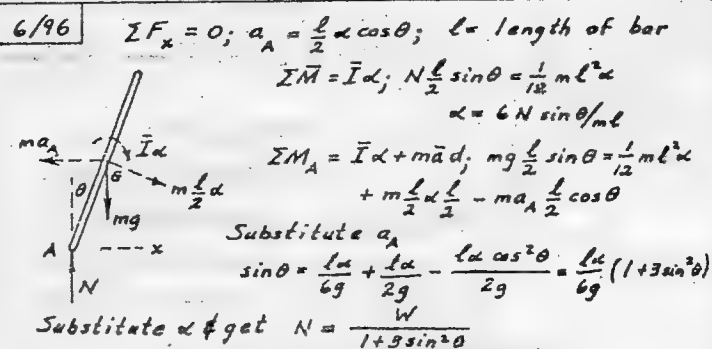 6/96
ΣF_x = 0; a_A = l/2 α cosθ; l = length of bar
ΣM̄ = Īα; N l/2 sinθ = 1/12 ml²α
α = 6 N sinθ/ml
ma_A
Īα
ΣM_A = Īα + mād; mg l/2 sinθ = 1/12 ml²α
G
θ
m l/2 α
+ m l/2 α l/2 - ma_A l/2 cosθ
mg
Substitute a_A
A
x
sinθ = lα/6g + lα/2g - lα cos²θ/2g = lα/6g (1+3sin²θ)
N
Substitute α & get N = W/1+3sin²θ